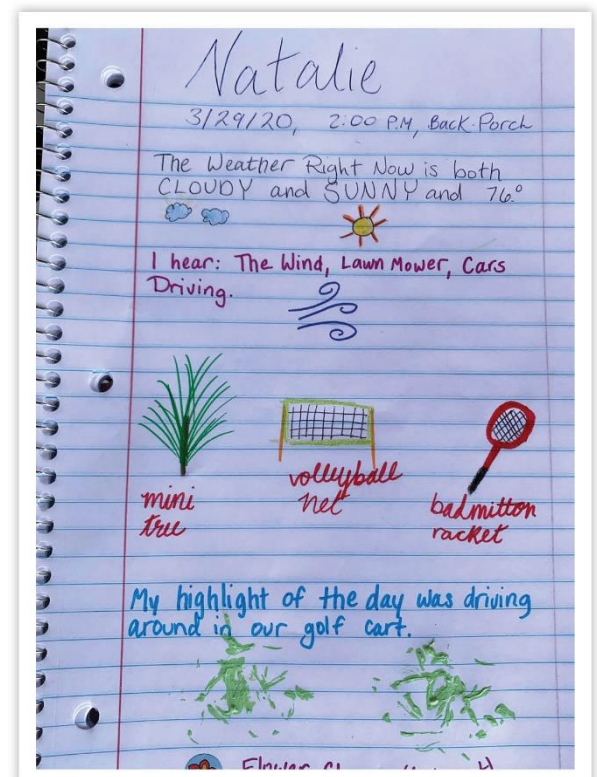 Natalie
3/29/20, 2:00 P.M, Back-Porch
The Weather Right Now is both
CLOUDY and SUNNY and 76°
I hear: The Wind, Lawn Mower, Cars
Driving.
mini
tree
volleyball
net
badmitton
racket
My highlight of the day was driving
around in our golf cart.
Flower